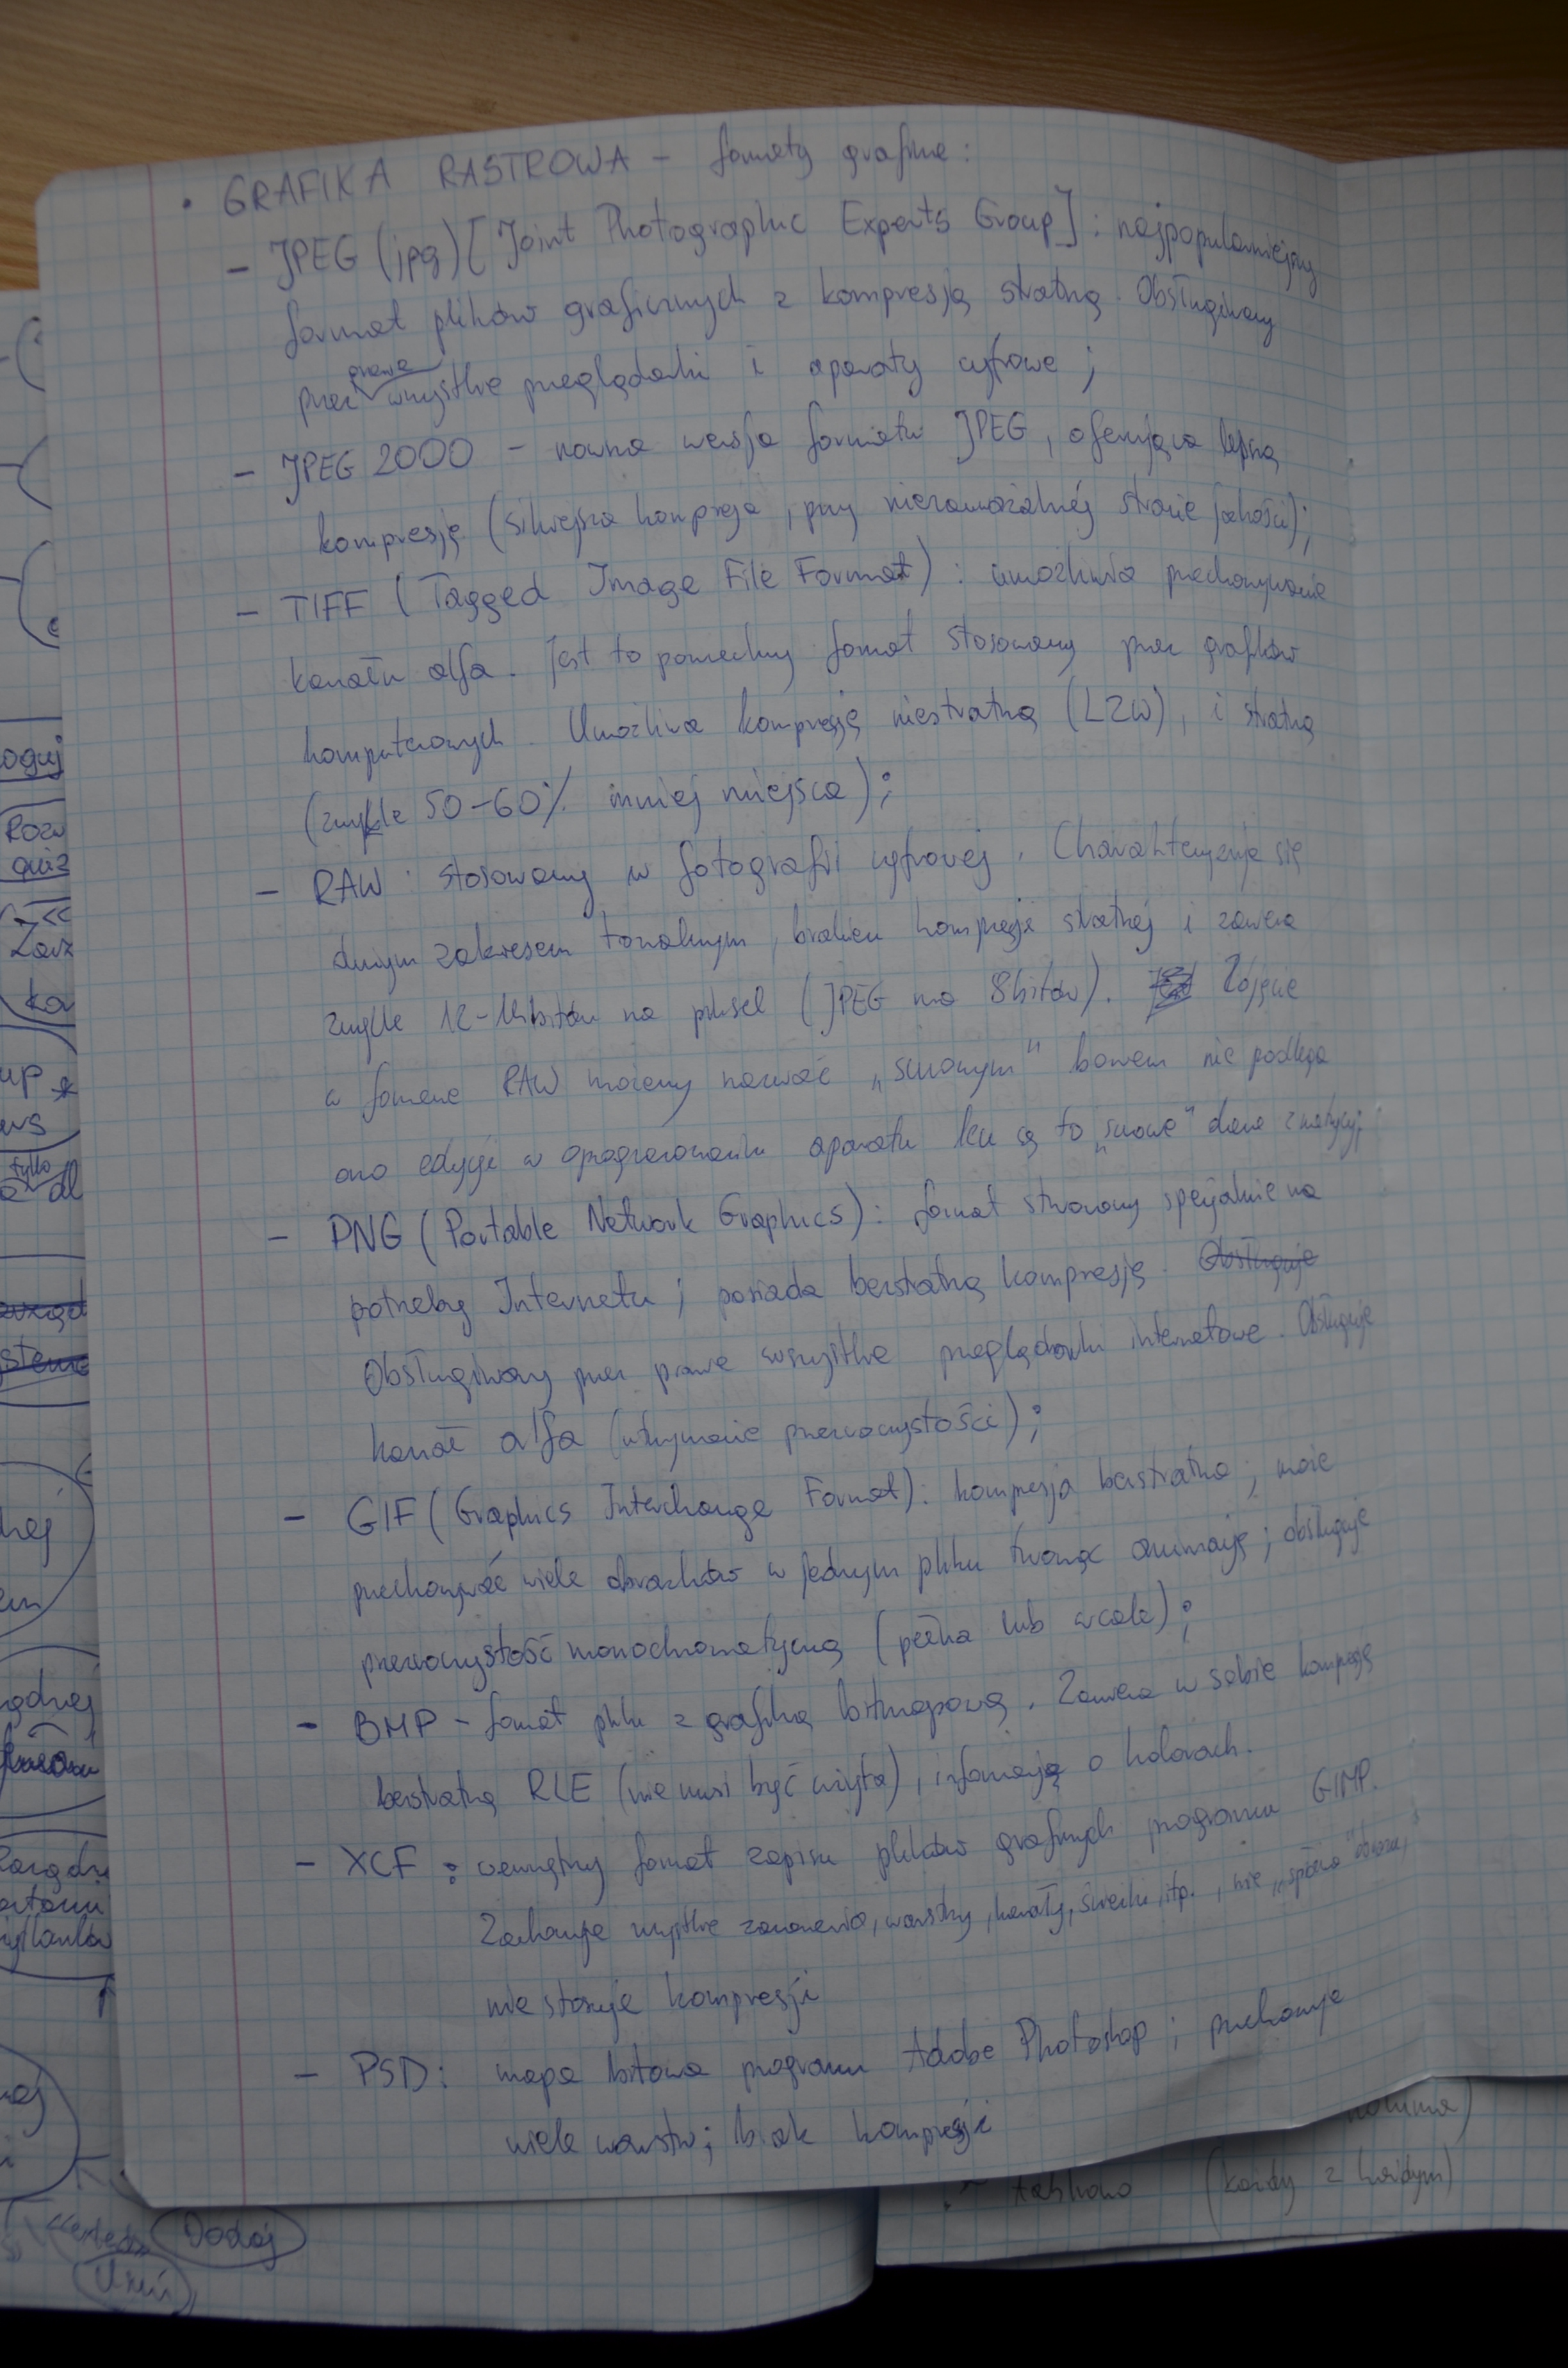 • GRAFIKA RASTROWA – formaty graficzne:
– JPEG (jpg) [Joint Photographic Experts Group]: najpopularniejszy
format plików graficznych z kompresją stratną. Obsługiwany
przez prawie wszystkie przeglądarki i aparaty cyfrowe;
– JPEG 2000 – nowsza wersja formatu JPEG, oferująca lepszą
kompresję (silniejsza kompresja, przy niezauważalnej stracie jakości);
– TIFF (Tagged Image File Format): umożliwia przechowywanie
kanału alfa. Jest to powszechny format stosowany przez grafików
komputerowych. Umożliwia kompresję niestratną (LZW), i stratną
(zwykle 50-60% mniej miejsca);
– RAW: stosowany w fotografii cyfrowej. Charakteryzuje się
dużym zakresem tonalnym, brakiem kompresji stratnej i zawiera
zwykle 12-14bitów na piksel (JPEG ma 8bitów). Zdjęcie
w formacie RAW możemy nazwać „surowym" bowiem nie podlega
ono edycji w oprogramowaniu aparatu lecz są to „surowe" dane z matrycy;
– PNG (Portable Network Graphics): format stworzony specjalnie na
potrzeby Internetu; posiada bezstratną kompresję. Obsługuje
Obsługiwany przez prawie wszystkie przeglądarki internetowe. Obsługuje
kanał alfa (utrzymanie przezroczystości);
– GIF (Graphics Interchange Format): kompresja bezstratna; może
przechowywać wiele obrazków w jednym pliku tworząc animację; obsługuje
przezroczystość monochromatyczną (pełna lub wcale);
– BMP – format pliku z grafiką bitmapową. Zawiera w sobie kompresję
bezstratną RLE (nie musi być użyta), informację o kolorach.
– XCF: wewnętrzny format zapisu plików graficznych programu GIMP.
Zachowuje wszystkie zaznaczenia, warstwy, kanały, ścieżki, itp., nie „spłaszcza" obrazu,
nie stosuje kompresji
– PSD: mapa bitowa programu Adobe Photoshop; przechowuje
wiele warstw; brak kompresji
(każdy z każdym)
Dodaj
Usuń